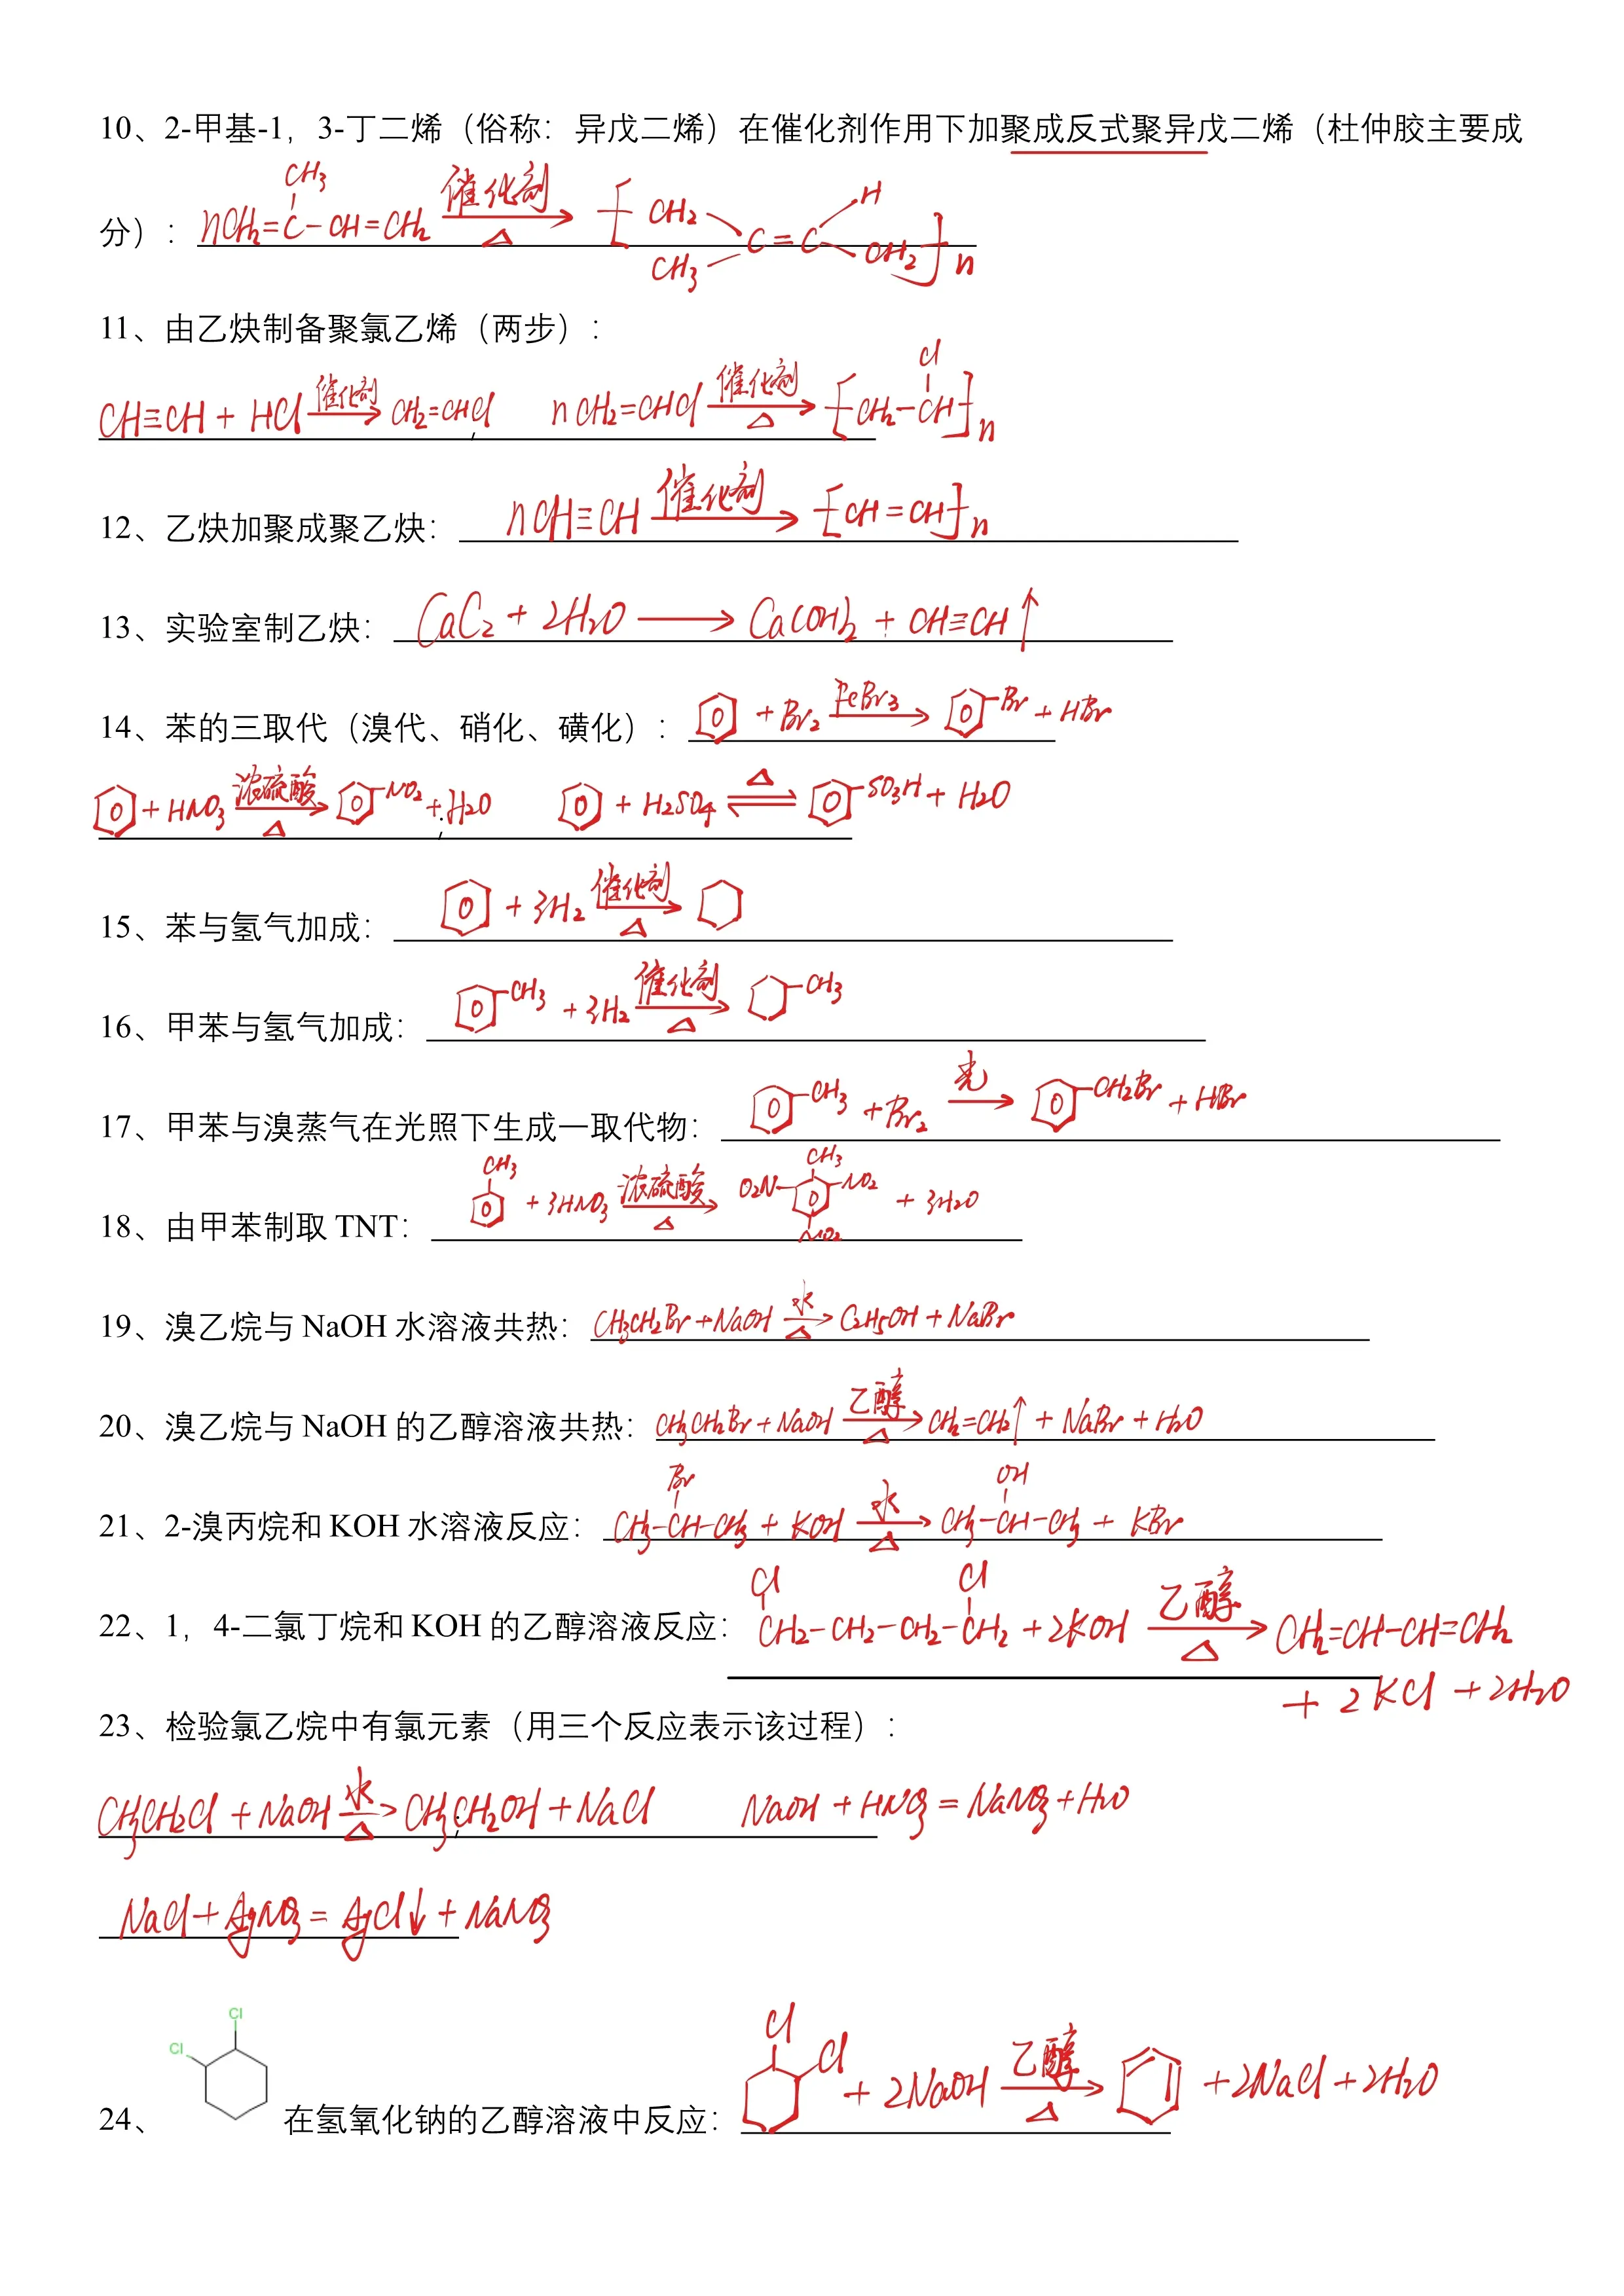 10、2-甲基-1，3-丁二烯（俗称：异戊二烯）在催化剂作用下加聚成反式聚异戊二烯（杜仲胶主要成
分）：nCH₂=C(CH₃)-CH=CH₂ 催化剂 △ → [CH₂ CH₃ C=C H CH₂]n
11、由乙炔制备聚氯乙烯（两步）：
CH≡CH + HCl 催化剂 → CH₂=CHCl ; nCH₂=CHCl 催化剂 △ → [CH₂-CH(Cl)]n
12、乙炔加聚成聚乙炔：nCH≡CH 催化剂 → [CH=CH]n
13、实验室制乙炔：CaC₂ + 2H₂O → Ca(OH)₂ + CH≡CH↑
14、苯的三取代（溴代、硝化、磺化）： + Br₂ FeBr₃ → Br + HBr
+ HNO₃ 浓硫酸 △ → NO₂ + H₂O ; + H₂SO₄ △ ⇌ SO₃H + H₂O
15、苯与氢气加成： + 3H₂ 催化剂 △ →
16、甲苯与氢气加成：CH₃ + 3H₂ 催化剂 △ → CH₃
17、甲苯与溴蒸气在光照下生成一取代物：CH₃ + Br₂ 光 → CH₂Br + HBr
18、由甲苯制取 TNT：CH₃ + 3HNO₃ 浓硫酸 △ → O₂N CH₃ NO₂ NO₂ + 3H₂O
19、溴乙烷与 NaOH 水溶液共热：CH₃CH₂Br + NaOH 水 △ → C₂H₅OH + NaBr
20、溴乙烷与 NaOH 的乙醇溶液共热：CH₃CH₂Br + NaOH 乙醇 △ → CH₂=CH₂↑ + NaBr + H₂O
21、2-溴丙烷和 KOH 水溶液反应：CH₃-CH(Br)-CH₃ + KOH 水 △ → CH₃-CH(OH)-CH₃ + KBr
22、1，4-二氯丁烷和 KOH 的乙醇溶液反应：CH₂(Cl)-CH₂-CH₂-CH₂(Cl) + 2KOH 乙醇 △ → CH₂=CH-CH=CH₂
+ 2KCl + 2H₂O
23、检验氯乙烷中有氯元素（用三个反应表示该过程）：
CH₃CH₂Cl + NaOH 水 △ → CH₃CH₂OH + NaCl ; NaOH + HNO₃ = NaNO₃ + H₂O
NaCl + AgNO₃ = AgCl↓ + NaNO₃
24、Cl Cl 在氢氧化钠的乙醇溶液中反应：Cl Cl + 2NaOH 乙醇 △ → + 2NaCl + 2H₂O